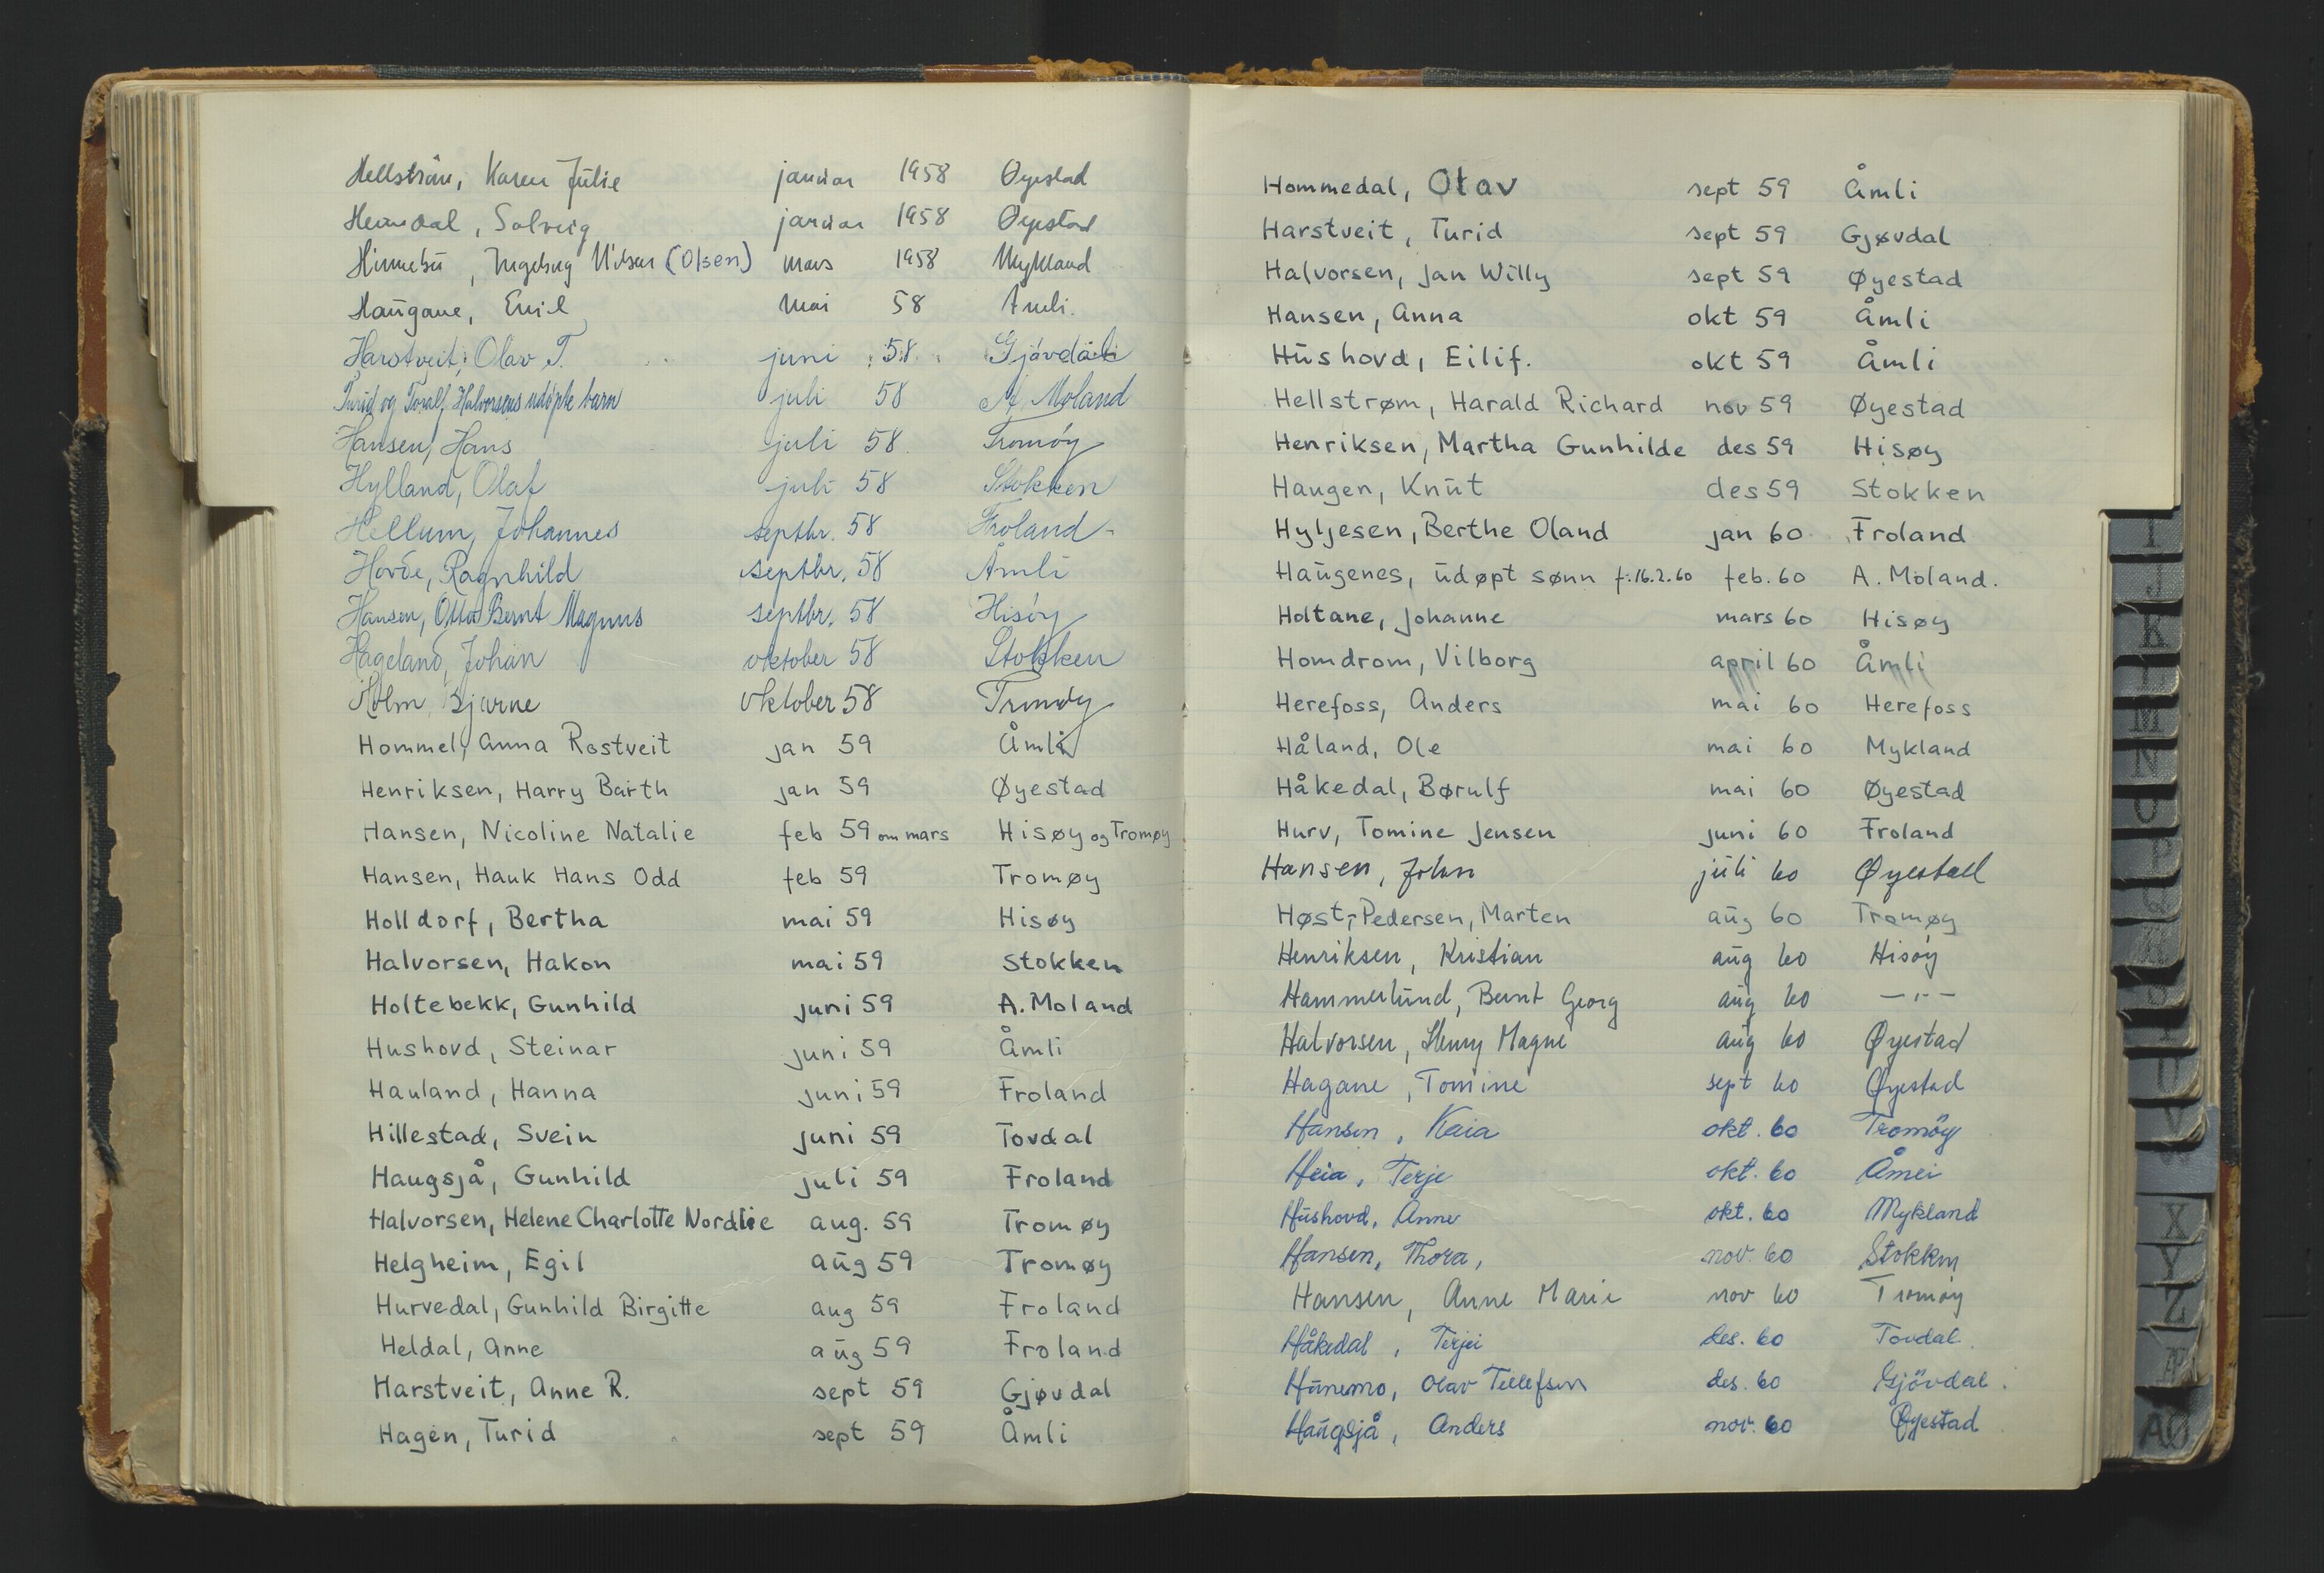 Hellström, Karen Julie januar 1958 Øyestad
Heimdal, Solveig januar 1958 Øyestad
Hinnebu, Ingebug Nilsen (Olsen) mars 1958 Mykland
Haugane, Emil mai 58 Åmli.
Harstveit, Olav T. juni 58. Gjövdal
Turid og Toralf Halvorsens udöpte barn juli 58 A. Moland
Hansen, Hans juli 58. Tromöy
Hylland, Olaf juli 58 Stokken
Hellum, Johannes septbr. 58 Froland-
Hovde, Ragnhild septbr. 58 Åmli
Hansen, Otto Bernt Magnus septbr. 58 Hisöy
Hageland, Johan oktober 58 Stokken
Holm, Bjarne oktober 58 Tromöy
Hommel, Anna Rostveit jan 59 Åmli
Henriksen, Harry Barth jan 59 Øyestad
Hansen, Nicoline Natalie feb 59 om mars Hisøy og Tromøy
Hansen, Hauk Hans Odd feb 59 Tromøy
Holldorf, Bertha mai 59 Hisøy
Halvorsen, Hakon mai 59 Stokken
Holtebekk, Gunhild juni 59 A. Moland
Hushovd, Steinar juni 59 Åmli
Hauland, Hanna juni 59 Froland
Hillestad, Svein juni 59 Tovdal
Haugsjå, Gunhild juli 59 Froland
Halvorsen, Helene Charlotte Nordlie aug. 59 Tromøy
Helgheim, Egil aug 59 Tromøy
Hurvedal, Gunhild Birgitte aug 59 Froland
Heldal, Anne aug 59 Froland
Harstveit, Anne R. sept 59 Gjøvdal
Hagen, Turid sept 59 Åmli
Hommedal, Olav sept 59 Åmli
Harstveit, Turid sept 59 Gjøvdal
Halvorsen, Jan Willy sept 59 Øyestad
Hansen, Anna okt 59 Åmli
Hushovd, Eilif. okt 59 Åmli
Hellstrøm, Harald Richard nov 59 Øyestad
Henriksen, Martha Gunhilde des 59 Hisøy
Haugen, Knut des 59 Stokken
Hyljesen, Berthe Oland jan 60 Froland
Haugenes, udøpt sønn f. 16.2.60 feb. 60 A. Moland.
Holtane, Johanne mars 60 Hisøy
Homdrom, Vilborg april 60 Åmli
Herefoss, Anders mai 60 Herefoss
Håland, Ole mai 60 Mykland
Håkedal, Børulf mai 60 Øyestad
Hurv, Tomine Jensen juni 60 Froland
Hansen, Johan juli 60 Øyestad
Høst-Pedersen, Marten aug 60 Tromøy
Henriksen, Kristian aug 60 Hisöy
Hammerlund, Bernt Georg aug 60 —"—
Halvorsen, Henry Magne aug 60 Øyestad
Hagane, Tomine sept 60 Øyestad
Hansen, Kaia okt. 60 Tromöy
Heia, Terje okt. 60 Åmli
Hushovd, Anne okt. 60 Mykland
Hansen, Thora, nov. 60 Stokken
Hansen, Anne Marie nov 60 Tromöy
Håkedal, Terjei des. 60 Tovdal.
Hunemo, Olav Tellefsen des. 60 Gjövdal.
Haugsjå, Anders nov. 60 Øyestad
I
J
K
L
M
N
O
P
U
V
X
Y
Z
Æ
AØ